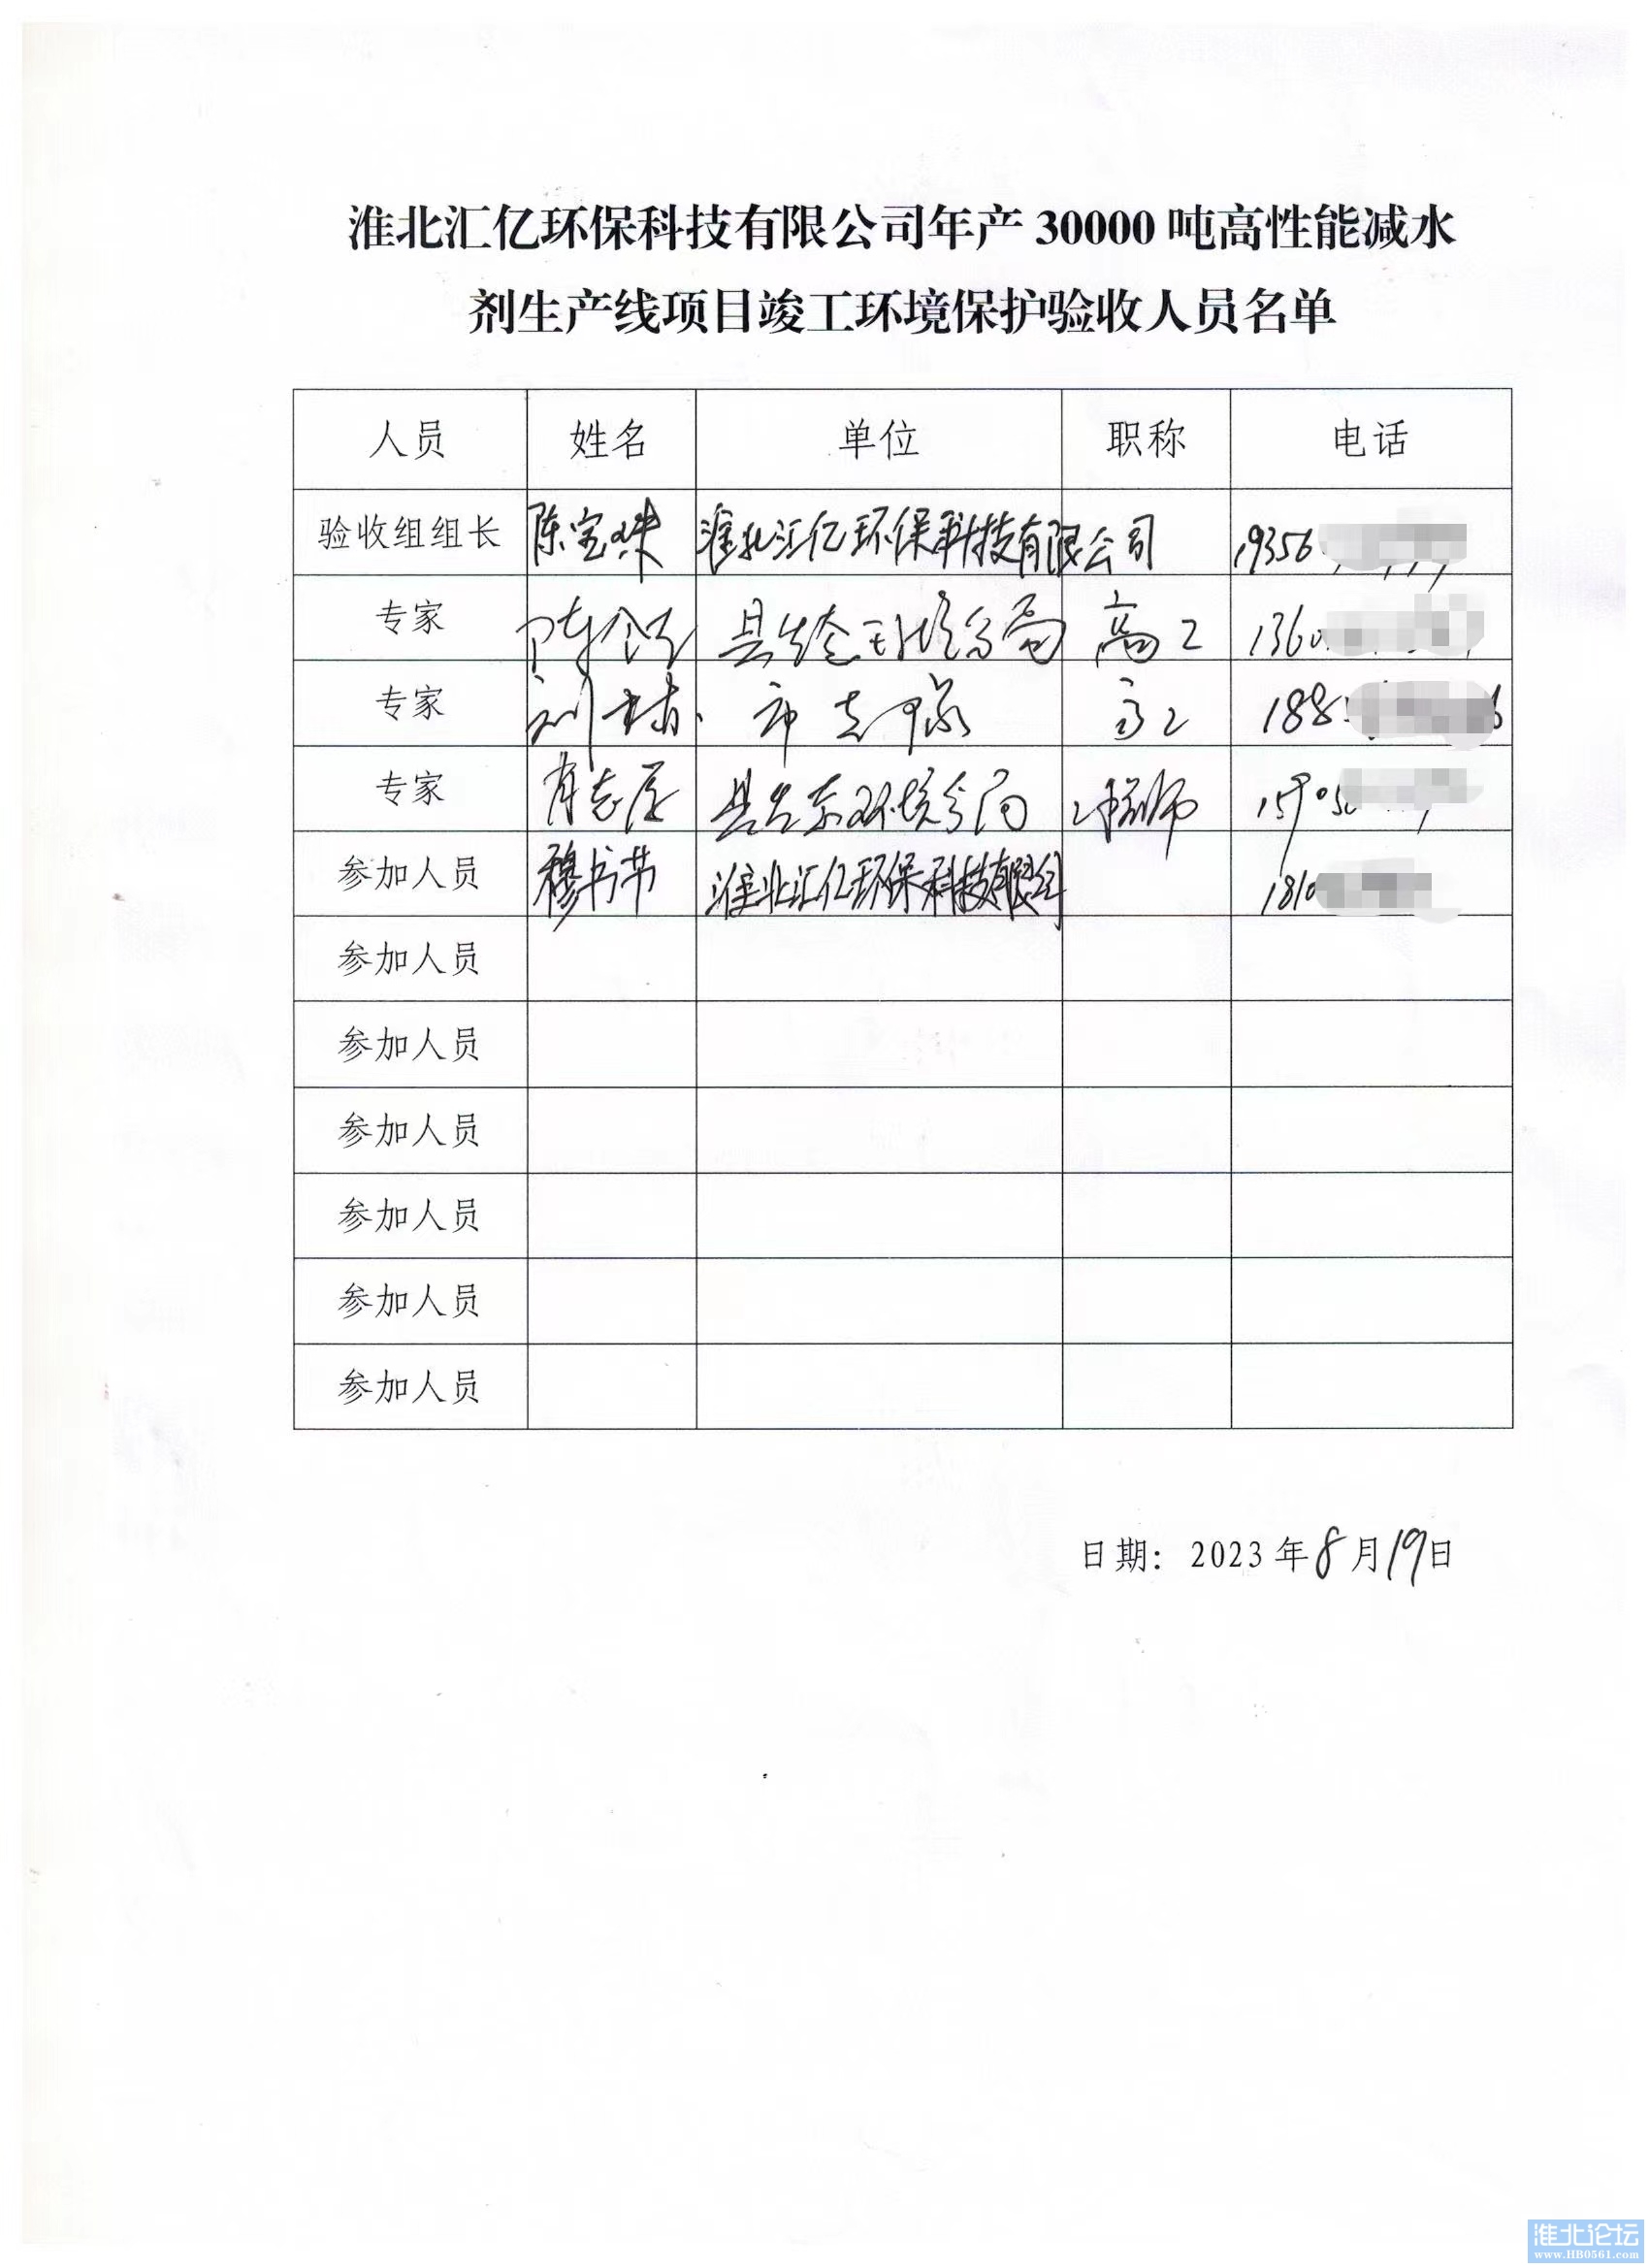 淮北汇亿环保科技有限公司年产 30000 吨高性能减水
剂生产线项目竣工环境保护验收人员名单
人员 姓名 单位 职称 电话
验收组组长 陈宝珠 淮北汇亿环保科技有限公司 19356
专家 陈 县生态环境分局 高工 1360
专家 刘 高工 188
专家 肖志 县生态环境分局 工程师 15905
参加人员 穆书节 淮北汇亿环保科技有限公司 1810
参加人员
参加人员
参加人员
参加人员
参加人员
参加人员
日期: 2023 年 8 月 19 日
淮北论坛
www.HB0561.com